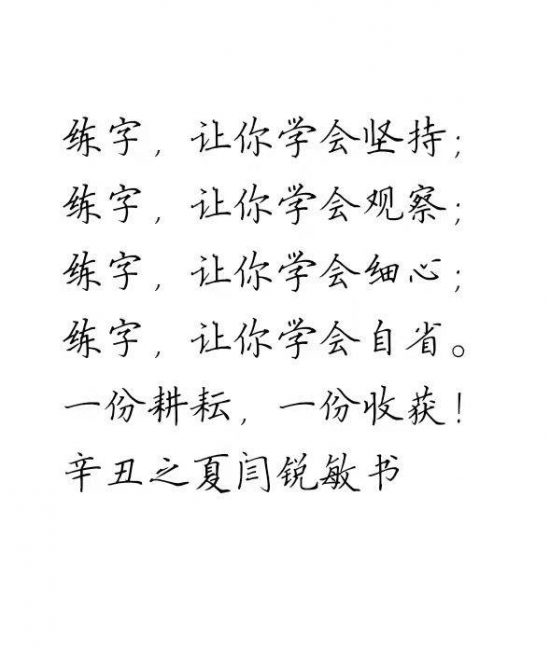 练字，让你学会坚持；
练字，让你学会观察；
练字，让你学会细心；
练字，让你学会自省。
一份耕耘，一份收获！
辛丑之夏闫锐敏书